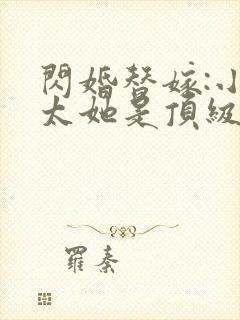 閃婚替嫁:小
太她是頂級
羅秦